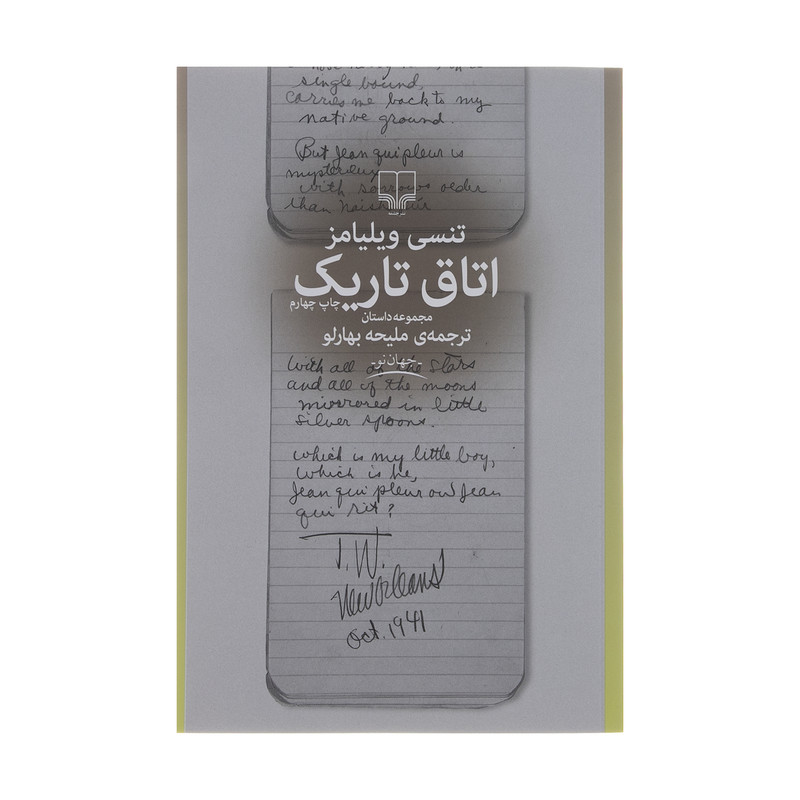 single bound,
carries me back to my
native ground.
But Jean qui pleur is
mysterieux
with sorrows older
than
نشر چشمه
تنسی ویلیامز
اتاق تاریک
چاپ چهارم
مجموعه داستان
ترجمه‌ی ملیحه بهارلو
- جهان نو -
With all of the stars
and all of the moons
mirrored in little
silver spoons.
which is my little boy,
which is he,
Jean qui pleur ou Jean
qui rit?
T. W.
New Orleans
Oct. 1941